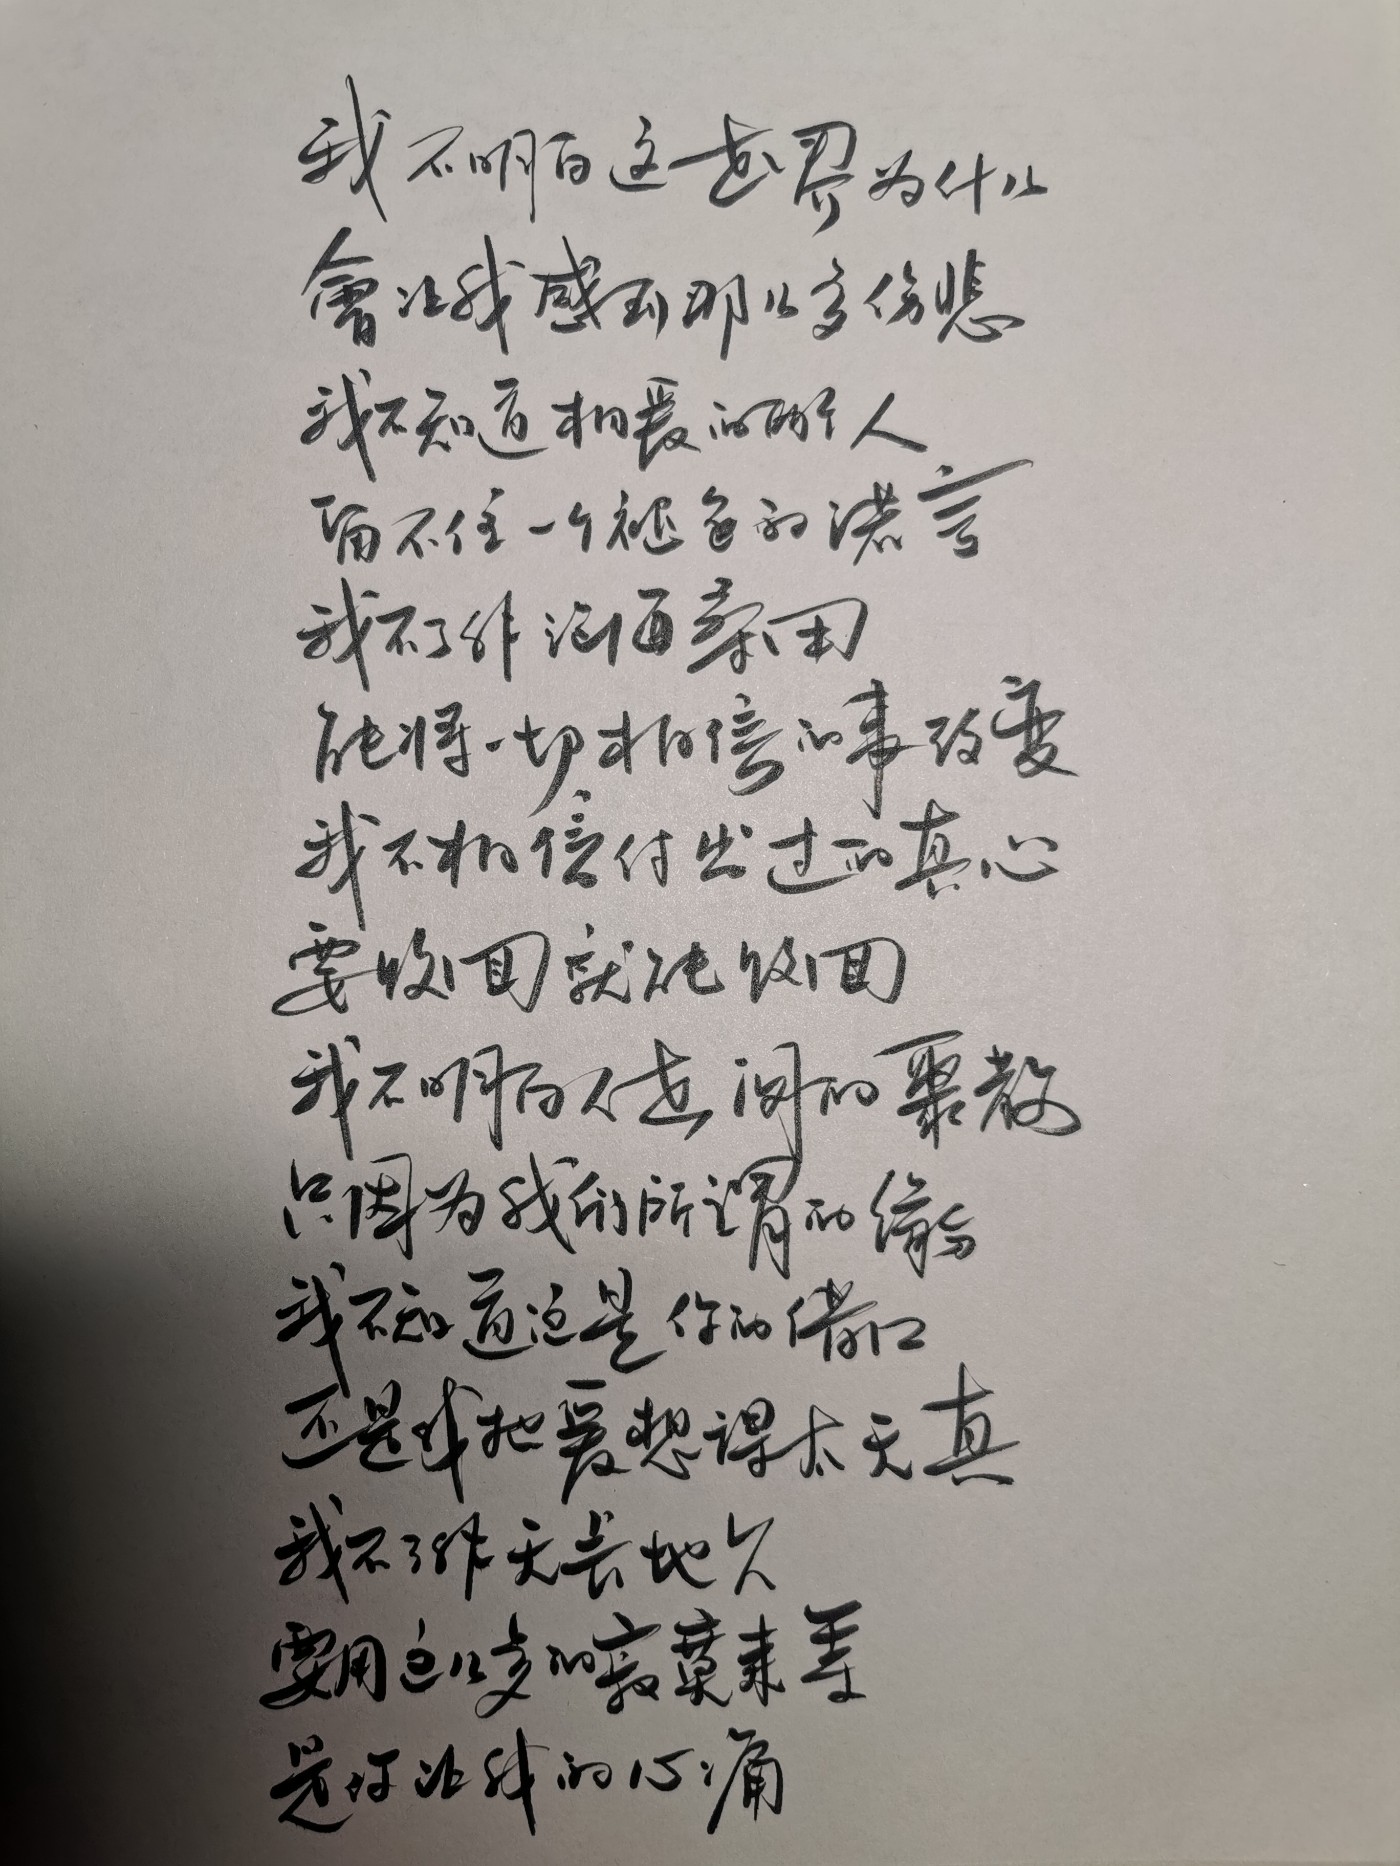 我不明白这世界为什么
會让我感到那么多伤悲
我不知道相爱的两个人
留不住一个褪色的诺言
我不了解沧海桑田
能将一切相信的事改变
我不相信付出过的真心
要收回就能收回
我不明白人世间的聚散
只因为我们所谓的缘份
我不知道这是你的借口
还是我把爱想得太天真
我不了解天长地久
要用这么多的寂寞来等
是你让我的心痛